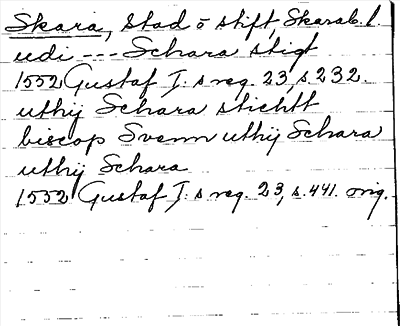 Skara, Stad o stift, Skarab. l.
udi --- Schara stigt
1552 Gustaf I:s reg. 23, s. 232.
uthij Schara stichtt
biscop Svenn uthij Schara
uthij Schara
1552 Gustaf I:s reg. 23, s. 441. orig.